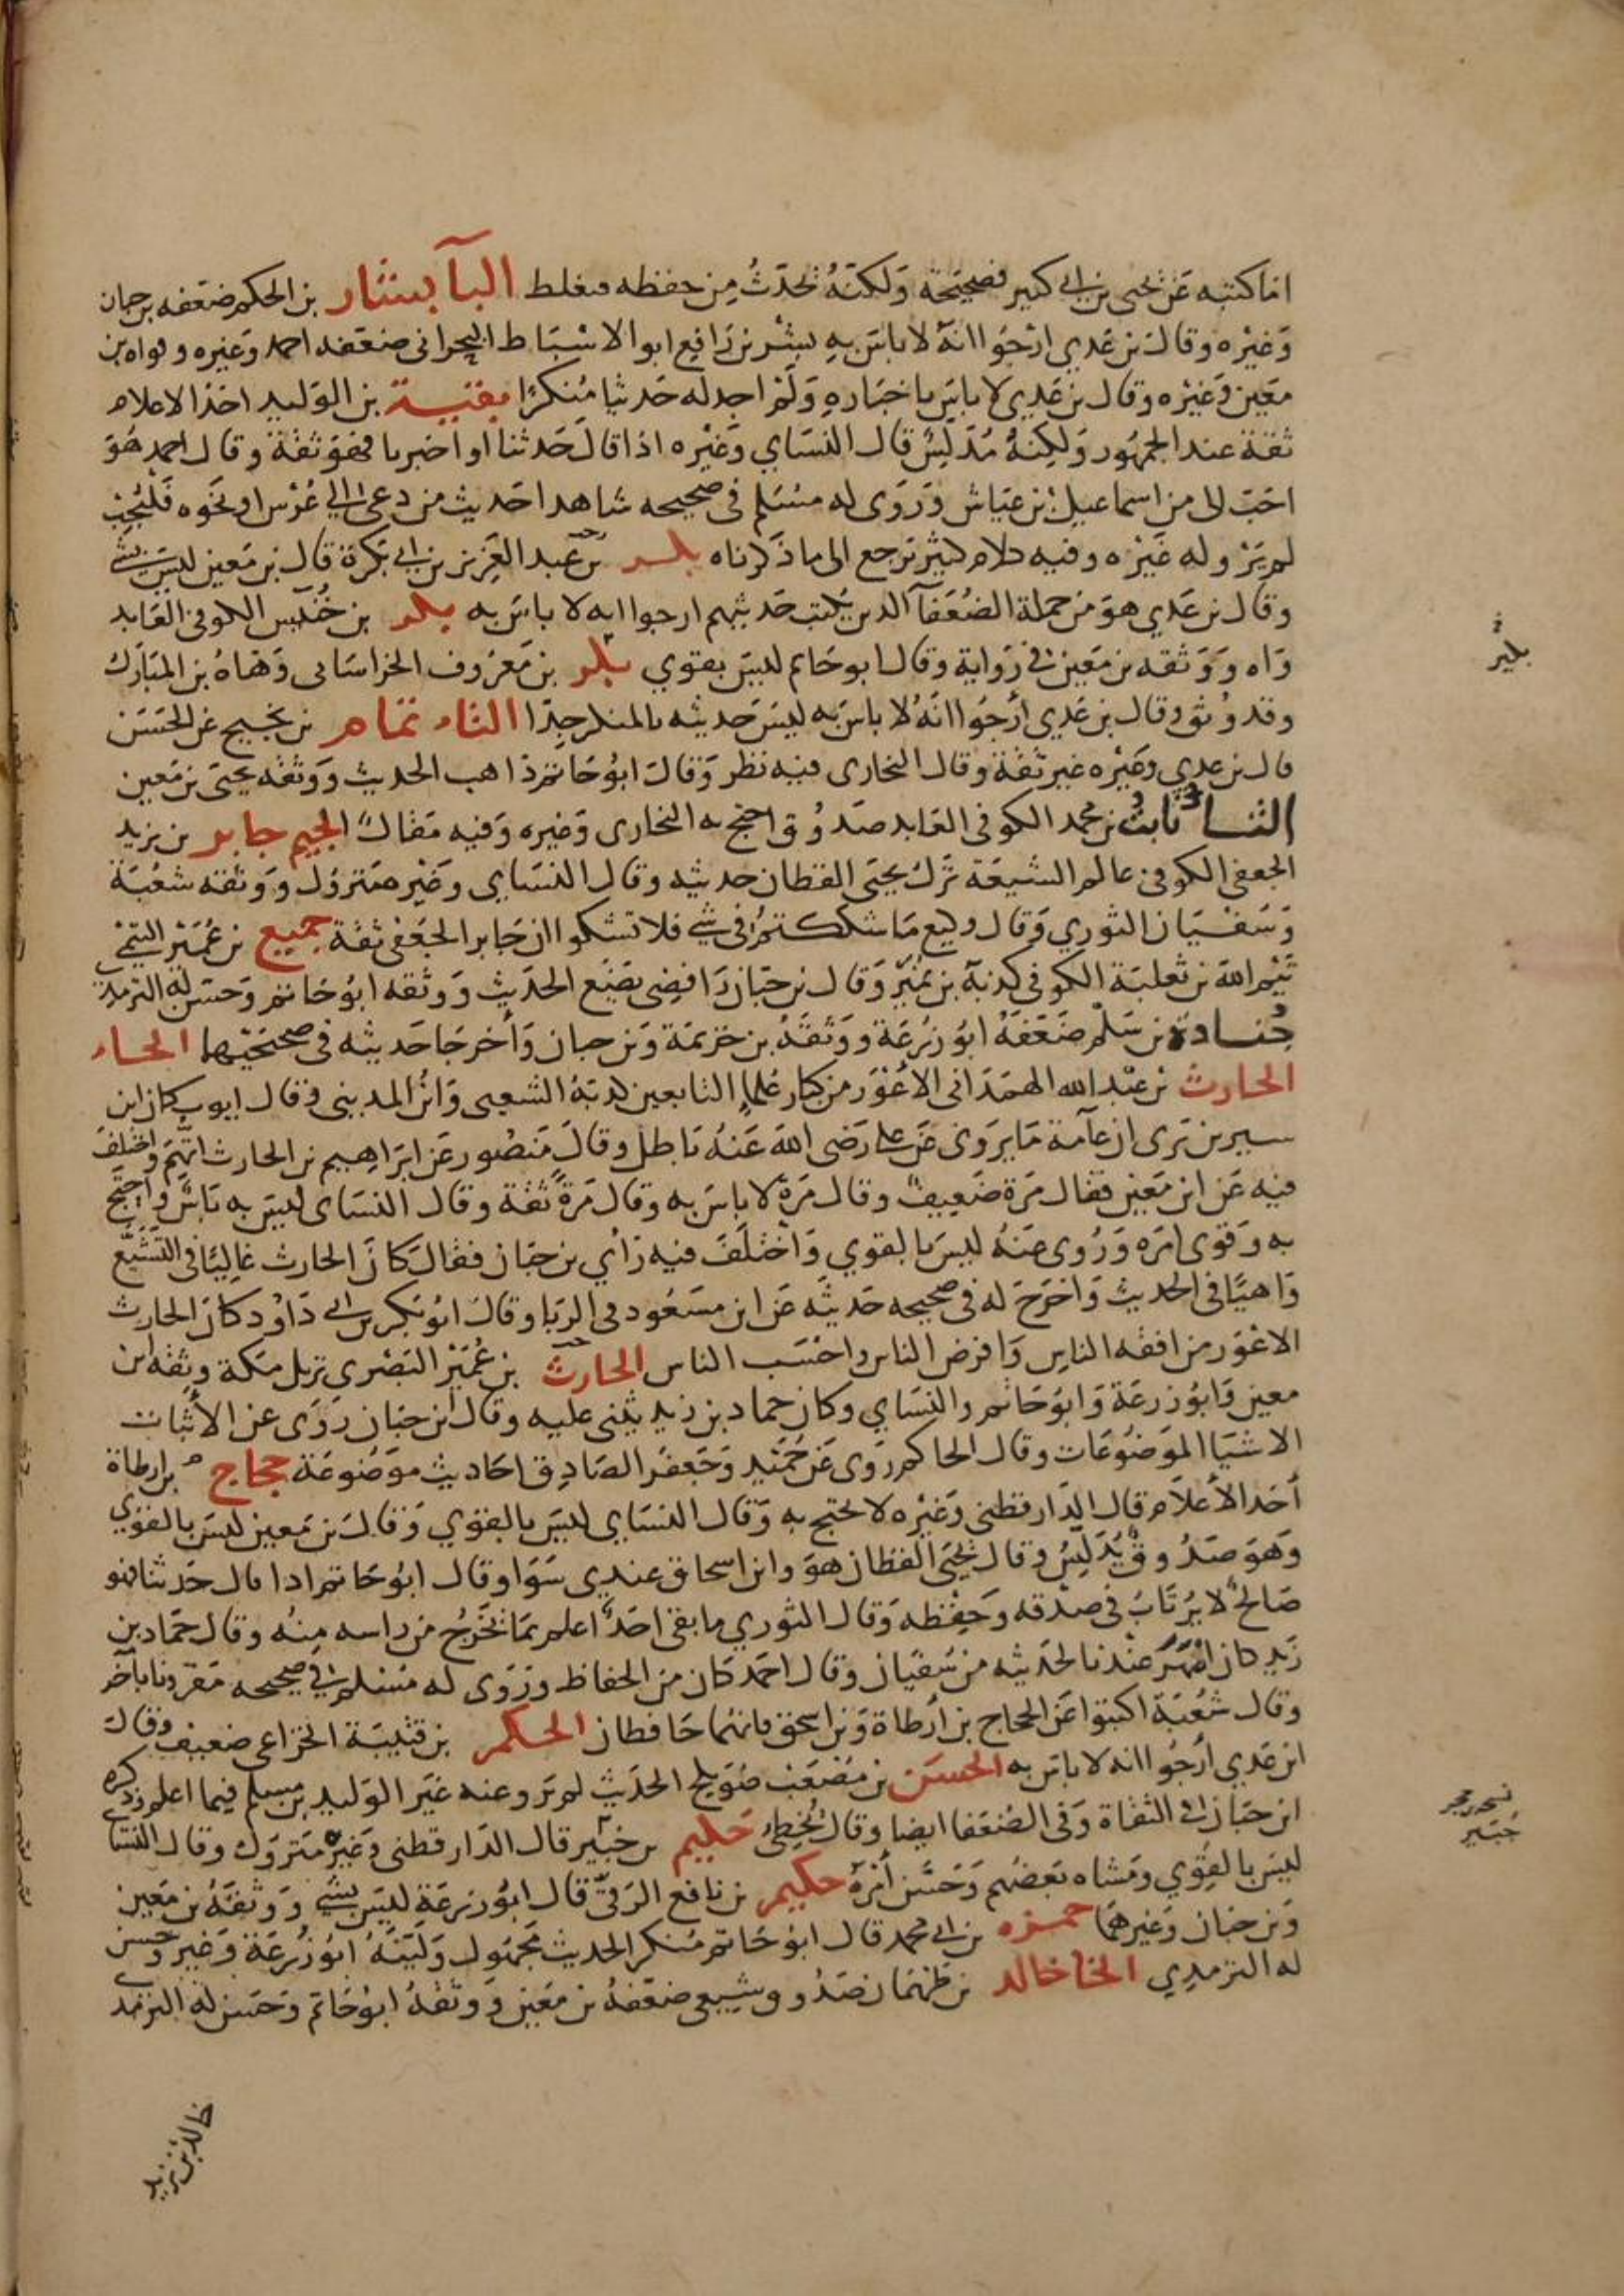 اما كتبه عن يحيى بن ابي كثير فصحيحة ولكنه يحدث من حفظه فيغلط البآ بشار بن الحكم ضعفه بن حبان
وغيره وقال بن عدي ارجوا انه لا باس به بشر بن رافع ابو الاسباط البحراني ضعفه احمد وغيره وقواه بن
معين وغيره وقال بن عدي لا باس باخباره ولم اجد له حديثا منكرا بقية بن الوليد احد الاعلام
ثقة عند الجمهور ولكنه مدلس قال النسَاي وغيره اذا قال حدثنا او اخبرنا فهو ثقة وقال احمد هو
احب الى من اسماعيل بن عياش وروى له مسلم في صحيحه شاهدا حديث من دعى الي عرس او نحوه فليجب
لم يرو له غيره وفيه كلام كثير نرجع الى ما ذكرناه بكر بن عبد العزيز بن ابي بكرة قال بن معين ليس بشي
وقال بن عدي هو من جملة الضعفآ الدين يكتب حديثهم ارجوا انه لا باس به بكر بن خنيس الكوفي العابد
واه ووثقه بن معين في رواية وقال ابو حاتم ليس بقوي بكير بن معروف الخراسانى وهاه بن المبارك
وقد وثق وقال بن عدي أرجوا انه لا باس به ليس حديثه بالمنكر جدا التاء تمام بن نجيح عن الحسن
قال بن عدي وغيره غير ثقة وقال البخارى فيه نظر وقال ابو حاتم ذاهب الحديث ووثقه يحيى بن معين
الثا ثابت بن محمد الكوفي العابد صدوق احتج به البخارى وغيره وفيه مقال الجيم جابر بن يزيد
الجعفي الكوفي عالم الشيعة ترك يحيى القطان حديثه وقال النسَاي وغيره متروك ووثقه شعبة
وسفيان الثوري وقال وكيع مَا شككتم في شي فلا تشكوا ان جابر الجعفي ثقة جميع بن عمير التيمي
تيم الله بن ثعلبة الكوفي كدبه بن نمير وقال بن حبان رافضي يضع الحديث ووثقه ابو حاتم وحسن له الترمدي
جنادة بن سلم ضعفه ابو زرعة ووثقه بن خزيمة وبن حبان وأخرجا حديثه في صحيحيهما الحاء
الحارث بن عبد الله الهمداني الاعور من كبار علما التابعين كدبه الشعبى وابن المديني وقال ايوب كان ابن
سيرين يرى ان عامة مَا يروى عن علي رضى الله عنه باطل وقال منصور عن ابراهيم بن الحارث اتهم واختلف
فيه عن ابن معين فقال مرة ضعيف وقال مرة لا باس به وقال مرة ثقة وقال النسَاي ليس به باس واحتج
به وقوى امره وروى عنه ليس بالقوي واختلف فيه رأي بن حبان فقال كان الحارث غاليا في التشيع
واهيا في الحديث واخرج له في صحيحه حديثه عن ابن مسعود في الربا وقال ابو بكر بن ابي داود كان الحارث
الاعور من افقه الناس وافرض الناس واحسب الناس الحارث بن عمير البصرى نزيل مكة وثقه ابن
معين وابو زرعة وابو حاتم والنسَاي وكان حماد بن زيد يثنى عليه وقال ابن حبان روى عن الأثبات
الاشيا الموضوعات وقال الحاكم روى عن حميد وجعفر الصادق احاديث موضوعة حجاج بن ارطاة
أحد الأعلام قال الدارقطنى وغيره لا يحتج به وقال النسَاي ليس بالقوي وقال بن معين ليس بالقوي
وهو صدوق يدلس وقال يحيى القطان هو وابن اسحاق عندي سوا وقال ابو حاتم ادا قال حدثنا فهو
صالح لا يرتاب في صدقه وحفظه وقال الثوري ما بقى احد اعلم بما يخرج من راسه منه وقال حماد بن
زيد كان اقهر عندنا لحديثه من سفيان وقال احمد كان من الحفاظ وروى له مسلم في صحيحه مقرونا بآخر
وقال شعبة اكتبوا عن الحجاج بن أرطاة وبن اسحق فانهما حافظان الحكم بن قتيبة الخزاعى ضعيف وقال
ابن عدي أرجوا انه لا باس به الحسن بن مصعب صويلح الحديث لم يرو عنه غير الوليد بن مسلم فيما اعلم ذكره
ابن حبان في الثقاة وفي الضعفا ايضا وقال يخطي حكيم بن جبير قال الدارقطنى وغيره متروك وقال النسَاي
ليس بالقوي ومشاه بعضهم وحسن أمره حكيم بن نافع الرقي قال ابو زرعة ليس بشي ووثقه بن معين
وبن حبان وغيرهما حمزه بن ابي محمد قال ابو حاتم منكر الحديث مجهول ولينه ابو زرعة وغيره وحسن
له الترمدي الخا خالد بن طهمان صدوق شيعي ضعفه بن معين ووثقه ابو حاتم وحسن له الترمدي
بكير
جبير
خالد بن يزيد